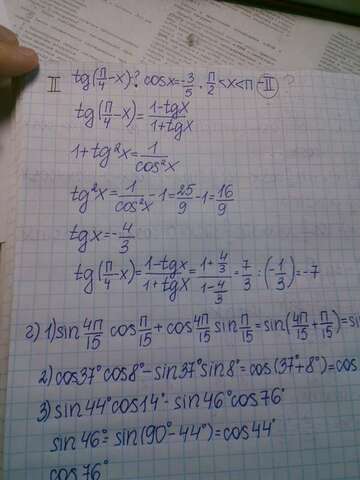 II tg(π/4-x)? cosx=-3/5. π/2<x<π-II ?
tg(π/4-x)=1-tgx/1+tgx
1+tg²x=1/cos²x
tg²x=1/cos²x-1=25/9-1=16/9
tgx=-4/3
tg(π/4-x)=1-tgx/1+tgx=1+4/3/1-4/3=7/3:(-1/3)=-7
г) 1) sin4π/15 cosπ/15+cos4π/15 sinπ/15=sin(4π/15+π/15)=sin
2) cos37°cos8°-sin37°sin8°=cos(37°+8°)=cos
3) sin44°cos14°-sin46°cos76°
sin46°=sin(90°-44°)=cos44°
cos76°